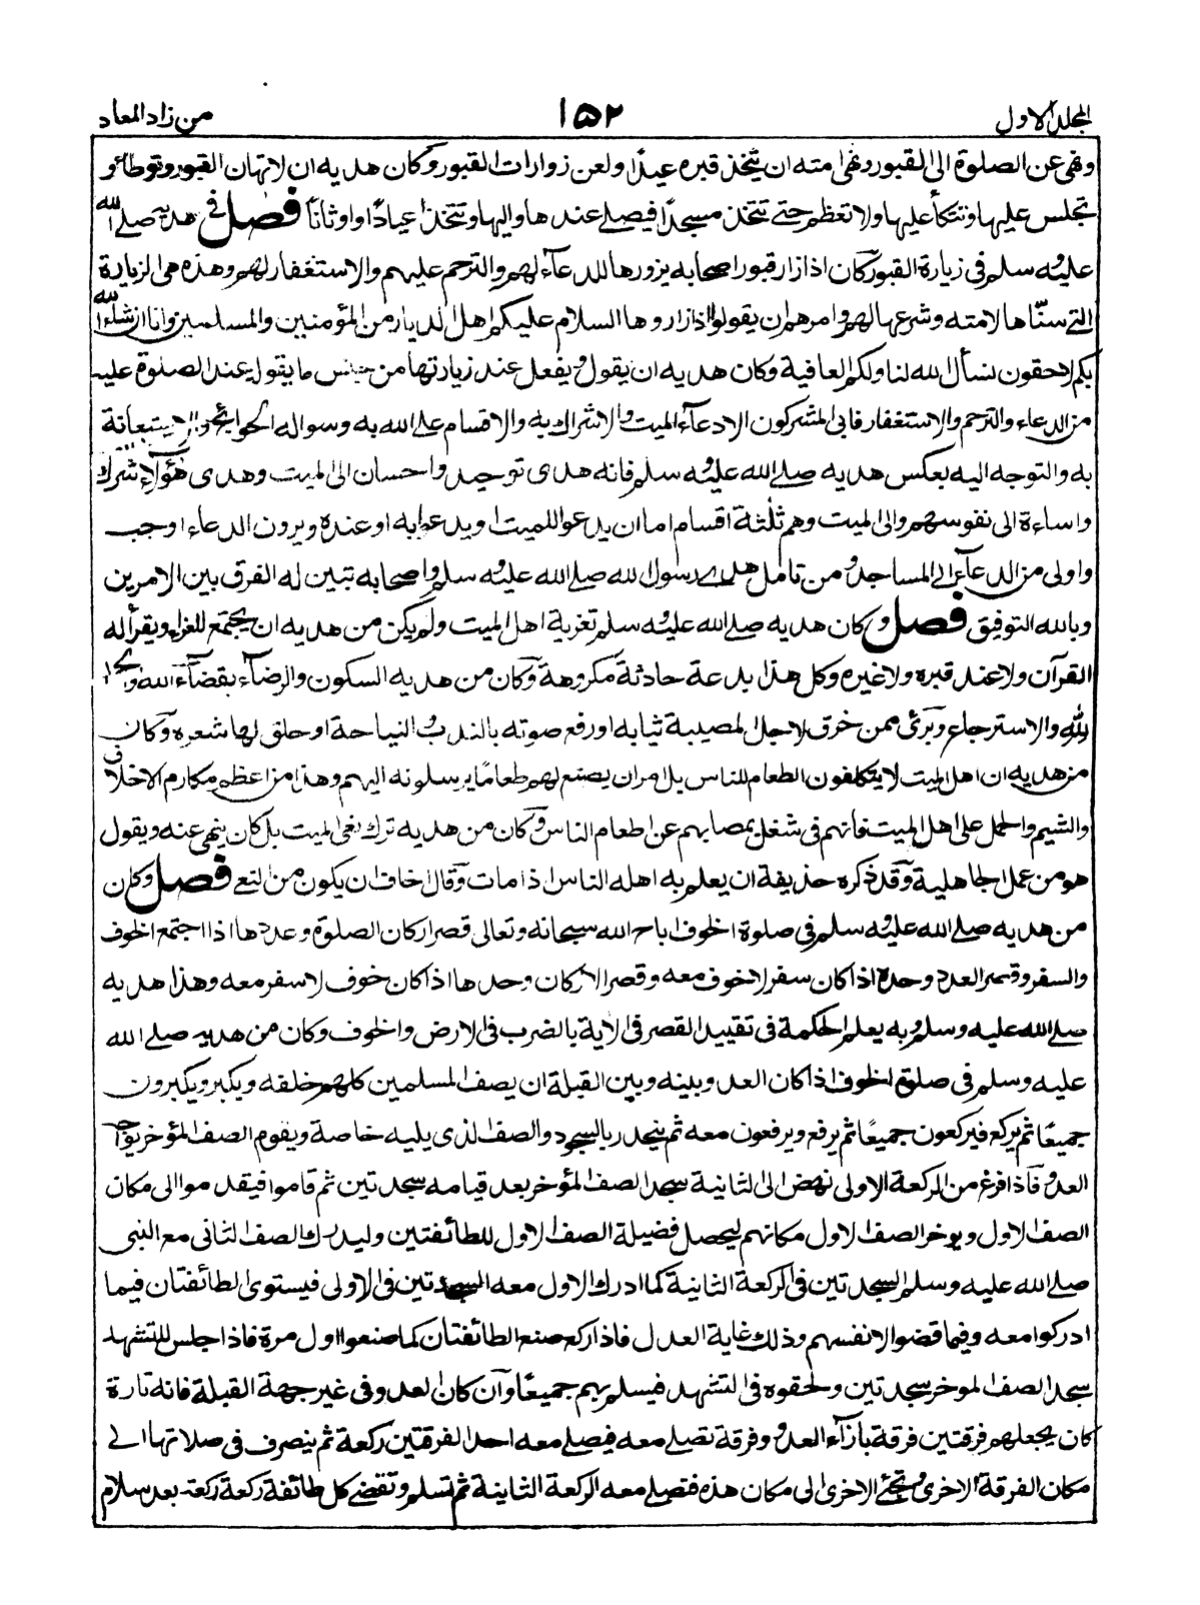 المجلد الاول
١٥٢
من زاد المعاد
ونهى عن الصلوة الى القبور ونهى امته ان يتخذ قبره عيدًا ولعن زوارات القبور وكان هديه ان لا تهان القبور وتوطأ و
تجلس عليها وتتكأ عليها ولا تعظم حتى تتخذ مسجدًا فيصلى عندها واليها وتتخذ اعيادًا واوثانًا فصل فى هديه صلى الله
عليه وسلم فى زيارة القبور كان اذا زار قبور اصحابه يزورها للدعاء لهم والترحم عليهم والاستغفار لهم وهذه هى الزيارة
التى سنّاها لامته وشرعها لهم وامرهم ان يقولوا اذا زاروها السلام عليكم اهل الديار من المؤمنين والمسلمين وانا ان شاء الله
بكم لاحقون نسأل الله لنا ولكم العافية وكان هديه ان يقول ويفعل عند زيارتها من جنس ما يقول عند الصلوة عليه
من الدعاء والترحم والاستغفار فابى المشركون الا دعاء الميت والاشراك به والاقسام على الله به وسواله الحوائج والاستعانة
به والتوجه اليه بعكس هديه صلى الله عليه وسلم فانه هدى توحيد واحسان الى الميت وهدى هؤلاء شرك
واساءة الى نفوسهم والى الميت وهم ثلثة اقسام اما ان يدعوا للميت او يدعوا به او عنده ويرون الدعاء اوجب
واولى من الدعاء فى المساجد ومن تامل هدى رسول الله صلى الله عليه وسلم واصحابه تبين له الفرق بين الامرين
وبالله التوفيق فصل وكان هديه صلى الله عليه وسلم تعزية اهل الميت ولم يكن من هديه ان يجتمع للعزاء ويقرأ له
القرآن ولا عند قبره ولا غيره وكل هذا بدعة حادثة مكروهة وكان من هديه السكون والرضاء بقضاء الله والحمد
لله والاسترجاع وبرئ ممن خرق لاجل المصيبة ثيابه او رفع صوته بالندب والنياحة او حلق لها شعره وكان
من هديه ان اهل الميت لا يتكلفون الطعام للناس بل امر ان يصنع لهم طعامًا يرسلونه اليهم وهذا من اعظم مكارم الاخلاق
والشيم والحمل على اهل الميت فانهم فى شغل بمصابهم عن اطعام الناس وكان من هديه ترك نعى الميت بل كان ينهى عنه ويقول
هو من عمل الجاهلية وقد ذكره حذيفة ان يعلم به اهله الناس اذا مات وقال اخاف ان يكون من النعى فصل وكان
من هديه صلى الله عليه وسلم فى صلوة الخوف اباح الله سبحانه وتعالى قصر اركان الصلوة وعددها اذا اجتمع الخوف
والسفر وقصر العدد وحده اذا كان سفر لا خوف معه وقصر الاركان وحدها اذا كان خوف لا سفر معه وهذا هديه
صلى الله عليه وسلم وبه يعلم الحكمة فى تقييد القصر فى الاية بالضرب فى الارض والخوف وكان من هديه صلى الله
عليه وسلم فى صلوة الخوف اذا كان العدو بينه وبين القبلة ان يصف المسلمين كلهم خلفه ويكبر ويكبرون
جميعًا ثم يركع فيركعون جميعًا ثم يرفع ويرفعون معه ثم ينحدر بالسجود والصف الذى يليه خاصة ويقوم الصف المؤخر يواجه
العدو فاذا فرغ من الركعة الاولى نهض الى الثانية سجد الصف المؤخر بعد قيامه سجدتين ثم قاموا فيقدموا الى مكان
الصف الاول ويوخر الصف الاول مكانهم ليحصل فضيلة الصف الاول للطائفتين وليدرك الصف الثانى مع النبى
صلى الله عليه وسلم السجدتين فى الركعة الثانية كما ادرك الاول معه السجدتين فى الاولى فيستوى الطائفتان فيما
ادركوا معه وفيما قضوا لانفسهم وذلك غاية العدل فاذا ركع صنع الطائفتان كما صنعوا اول مرة فاذا جلس للتشهد
سجد الصف الموخر سجدتين ولحقوه فى التشهد فيسلم بهم جميعًا وان كان العدو فى غير جهة القبلة فانه تارة
كان يجعلهم فرقتين فرقة بازآء العدو وفرقة تصلى معه فيصلى معه احد الفرقتين ركعة ثم ينصرف فى صلاتها الى
مكان الفرقة الاخرى وتجئ الاخرى الى مكان هذه فتصلى معه الركعة الثانية ثم تسلم وتقضى كل طائفة ركعة ركعة بعد سلام